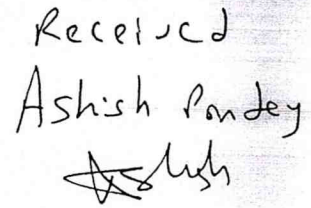 Received
Ashish Pandey
Ashish